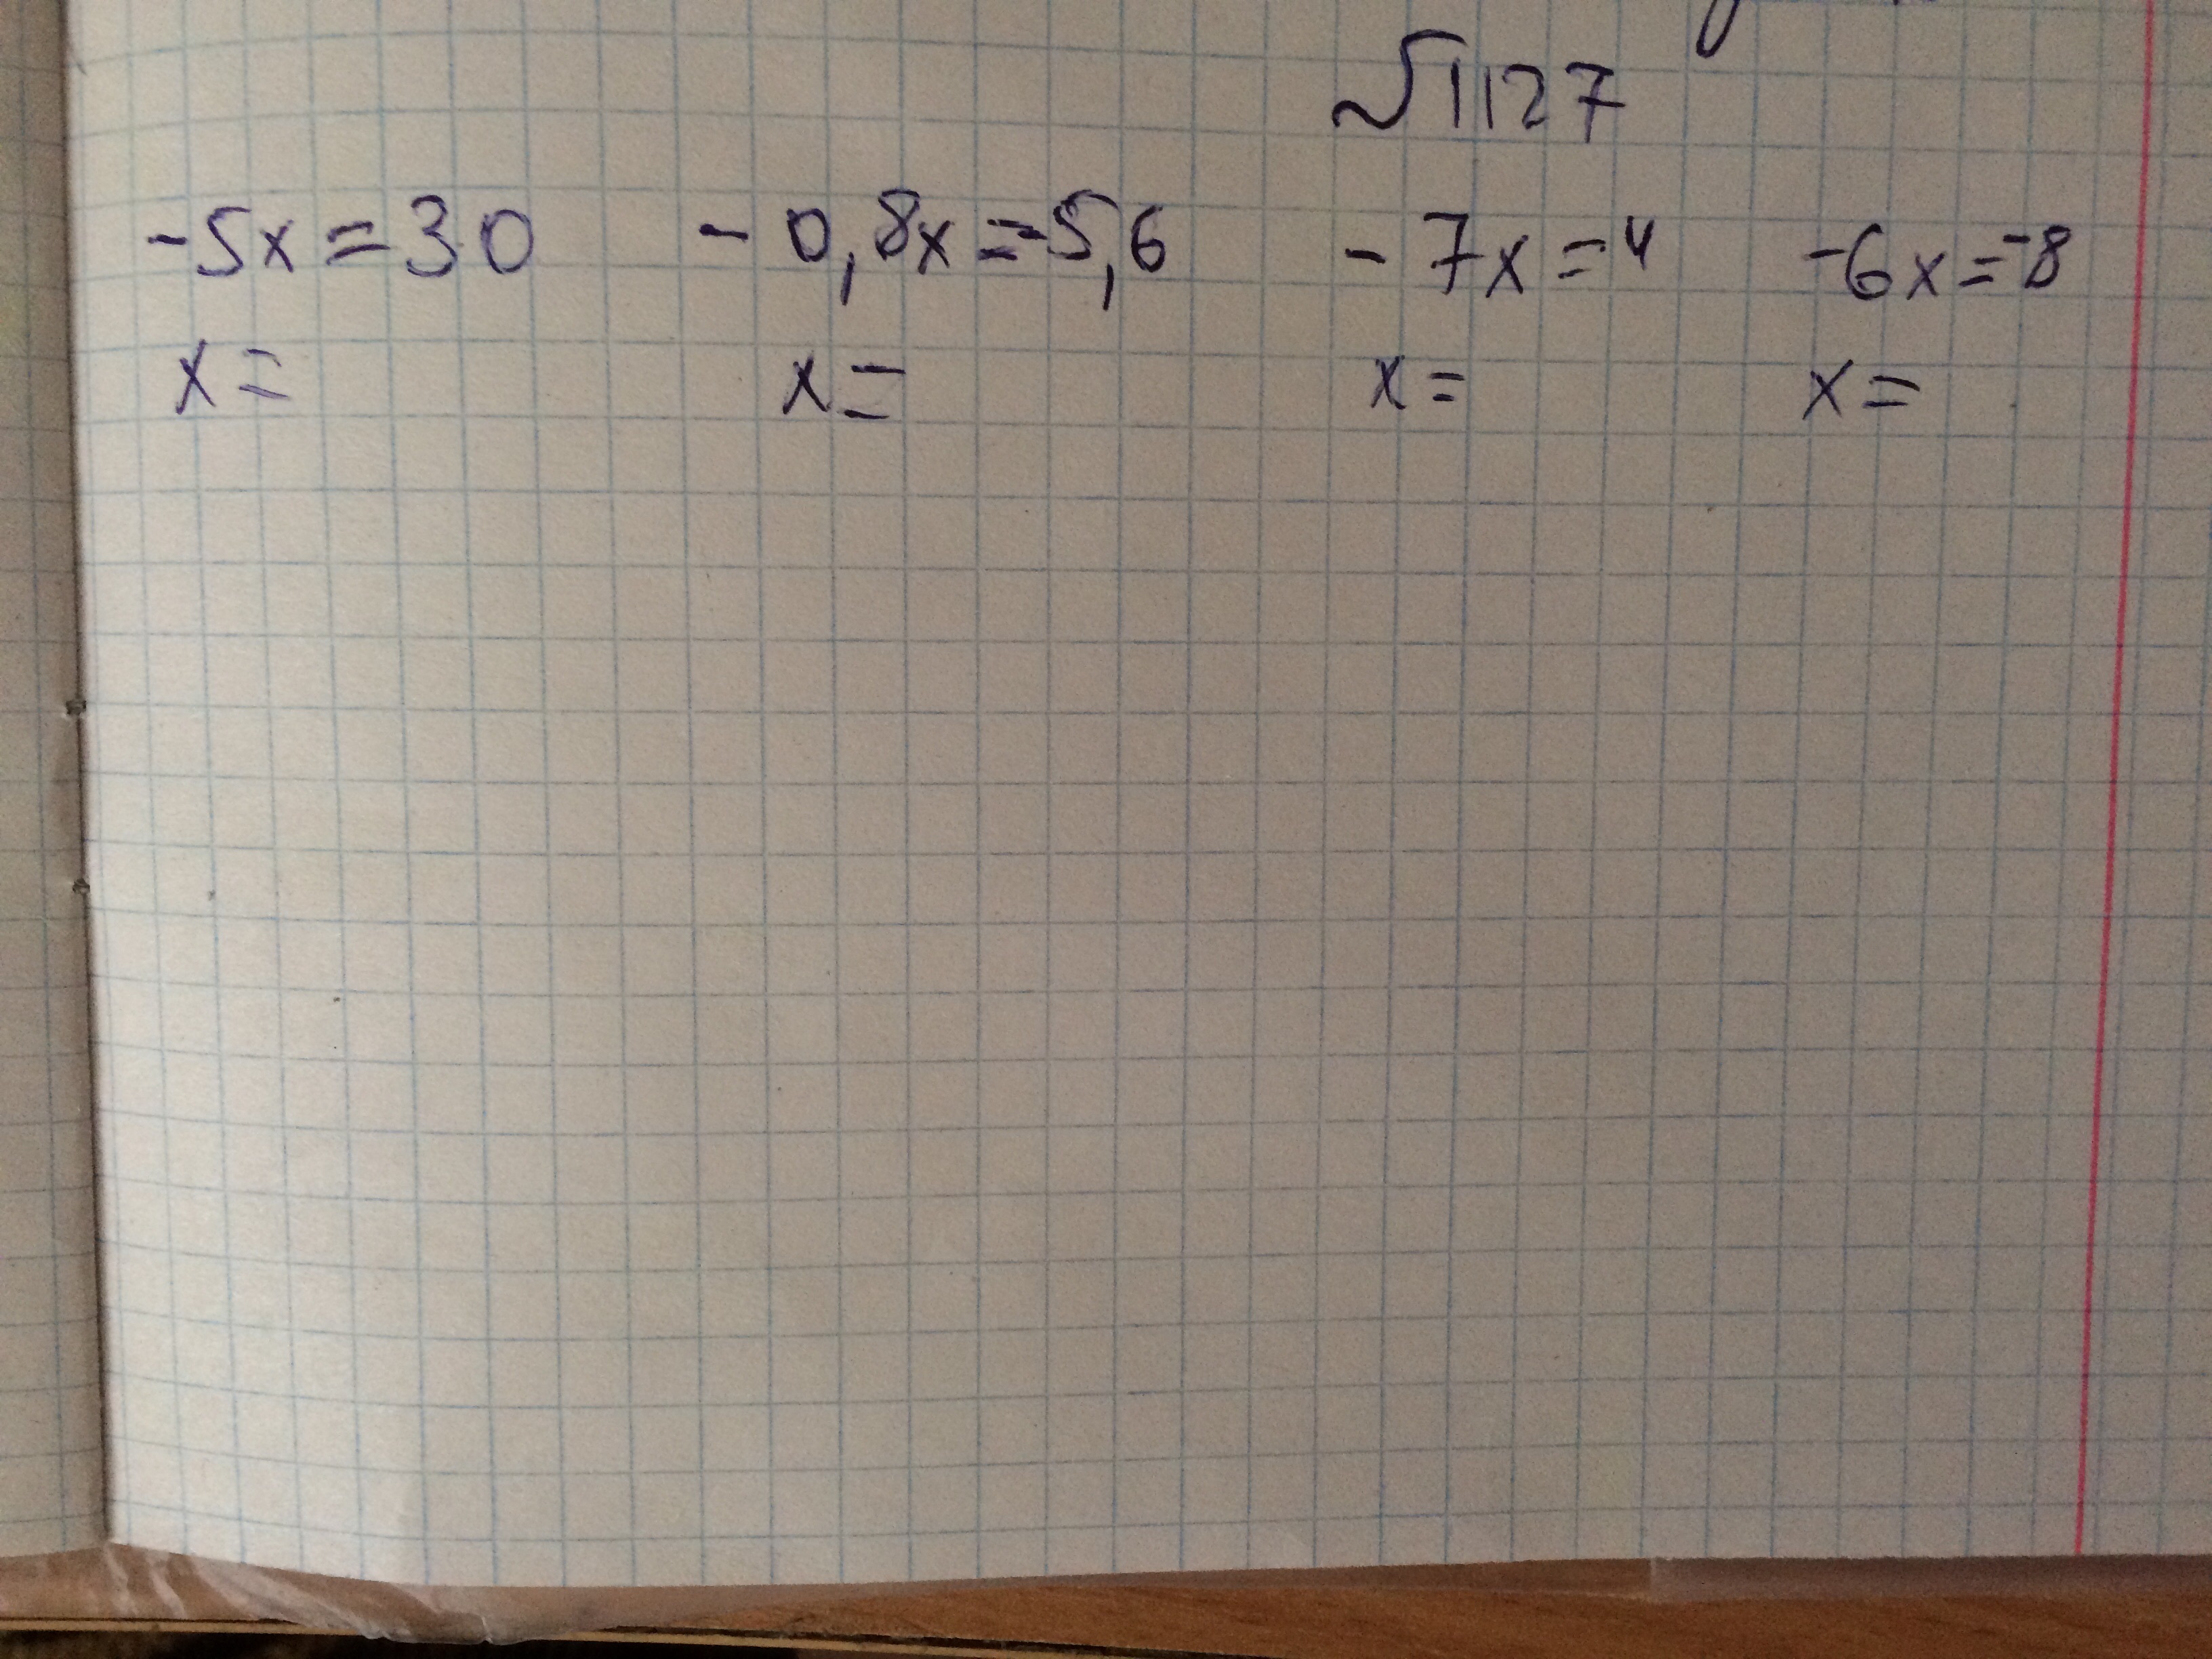 √1127
-5x=30 -0,8x=-5,6 -7x=4 -6x=-8
x= x= x= x=